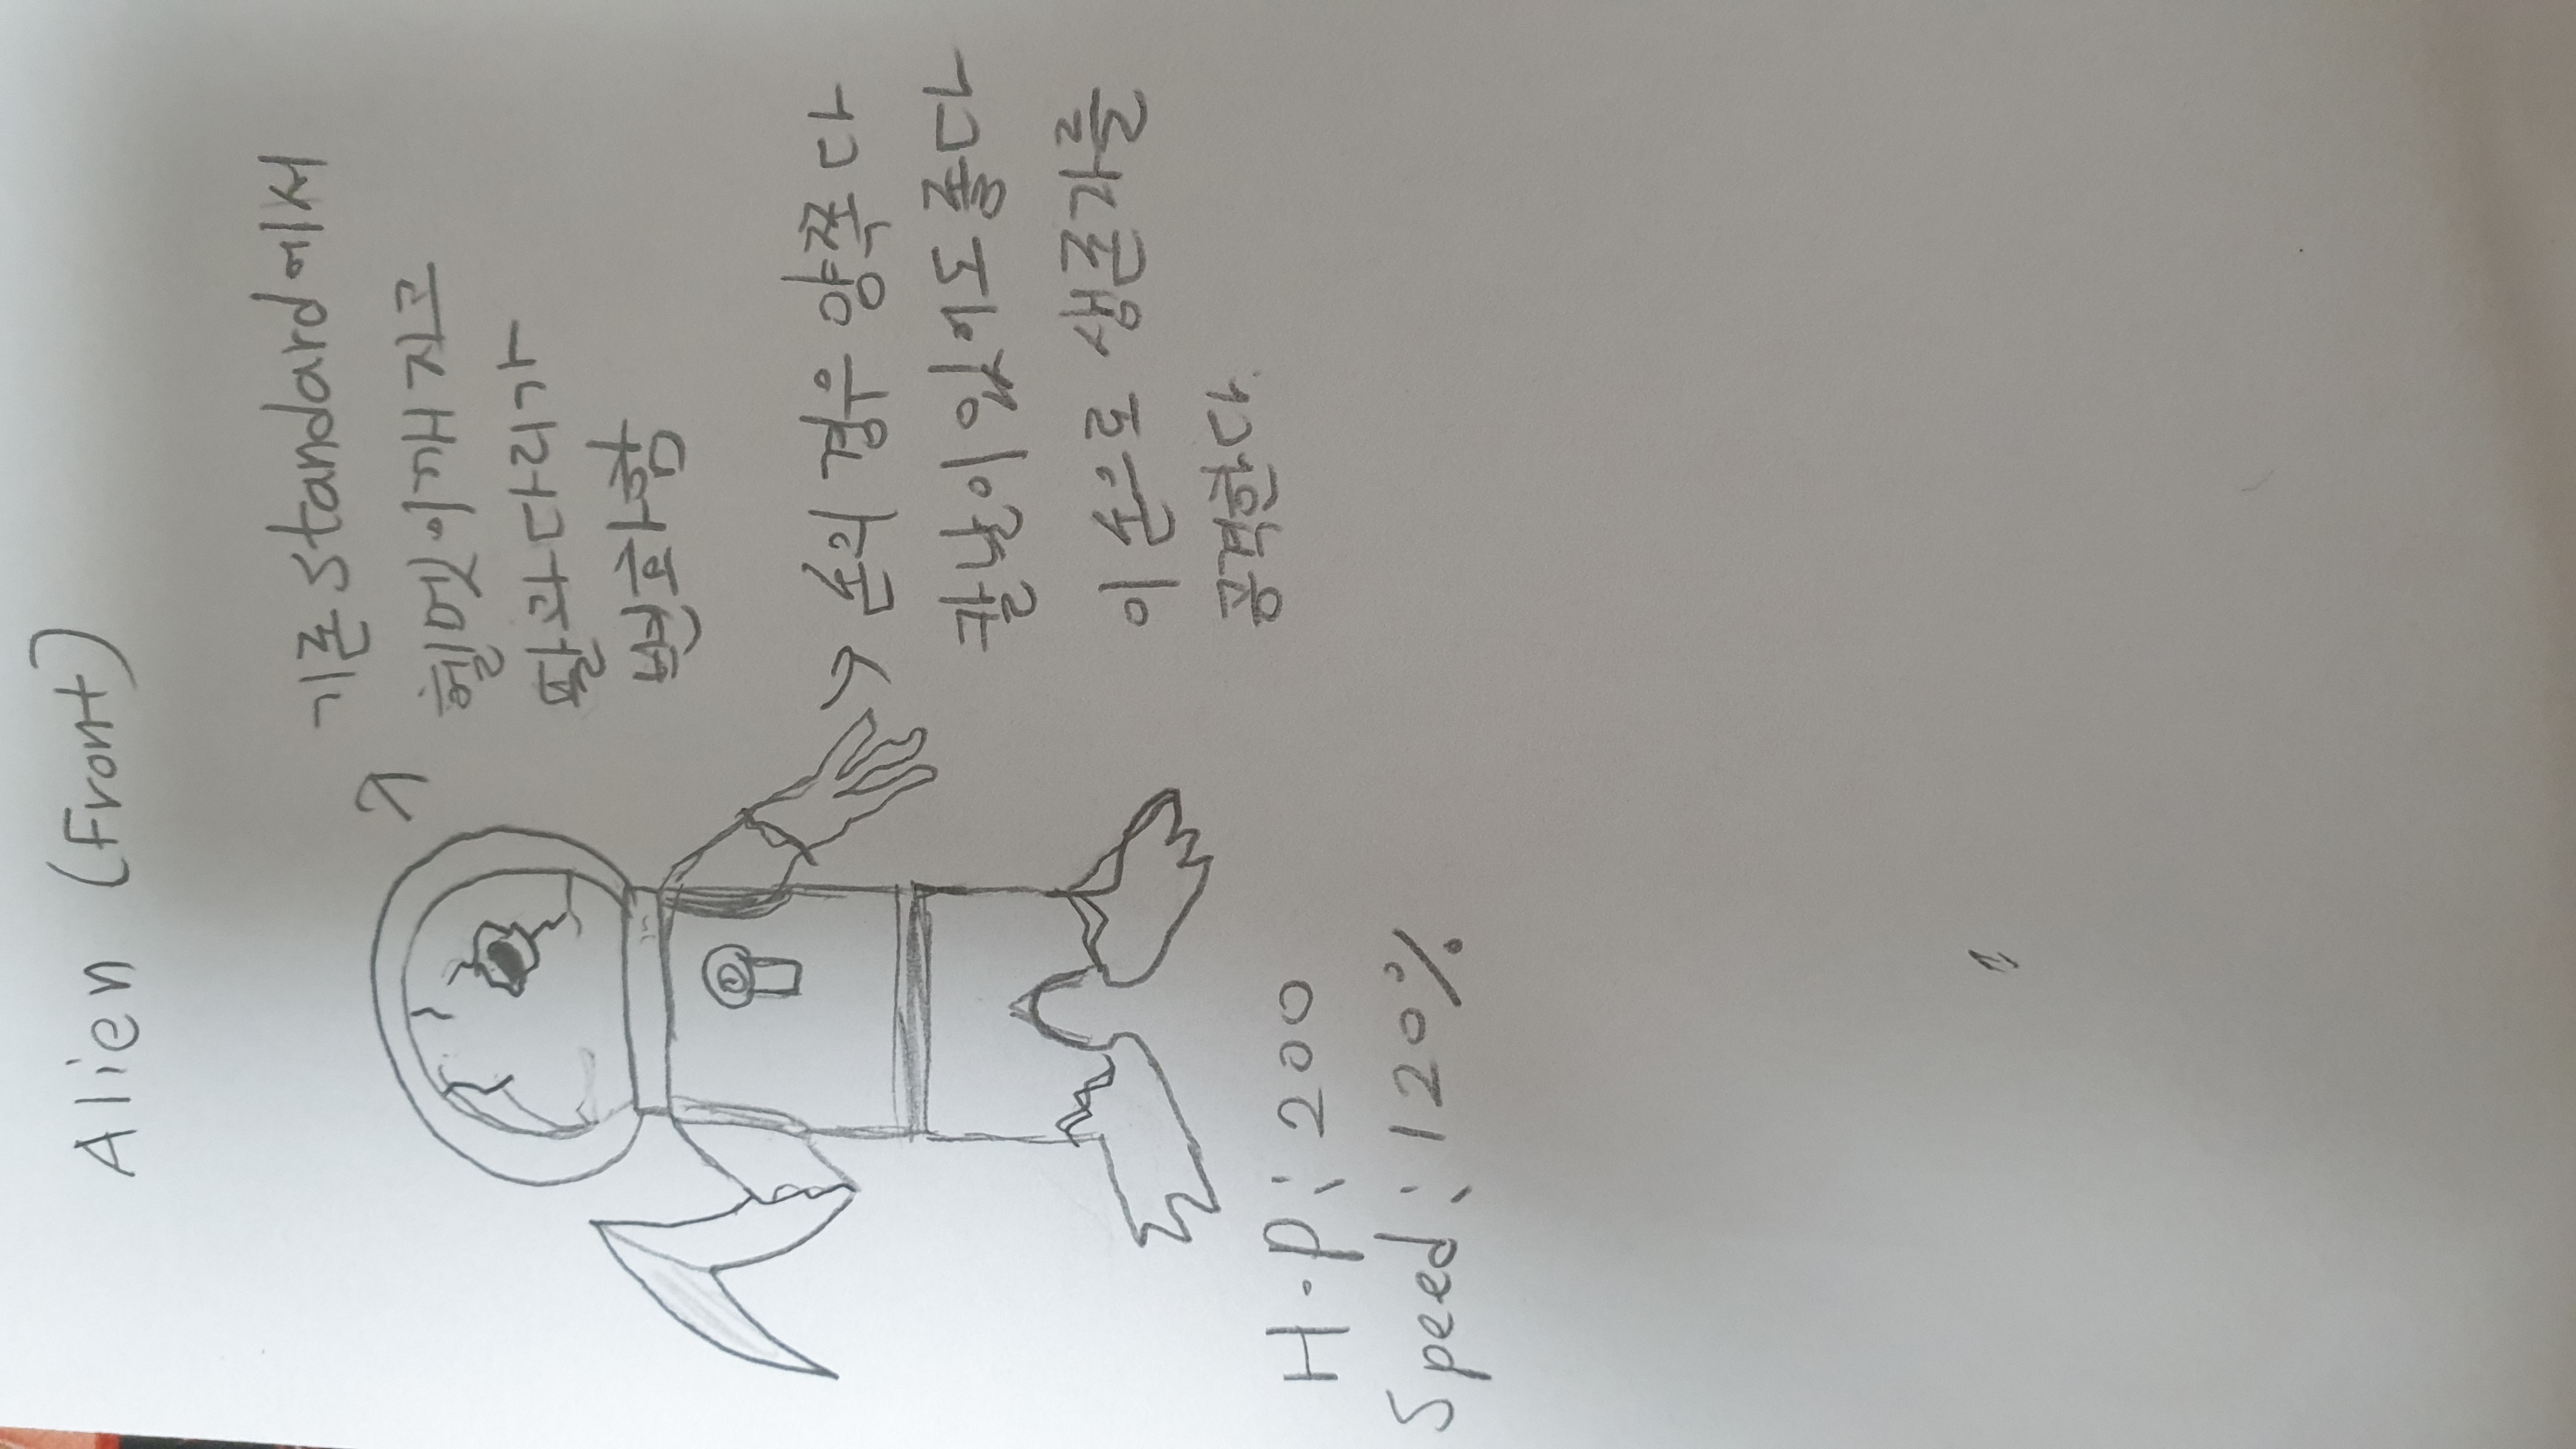 Alien (Front)
기존 standard에서
헬멧이 깨지고
팔과 다리가
변화함
손의 경우 양쪽 다
칼날이 있어도 좋다
이 손으로 생존자를
공격한다.
H·P: 200
Speed: 120%